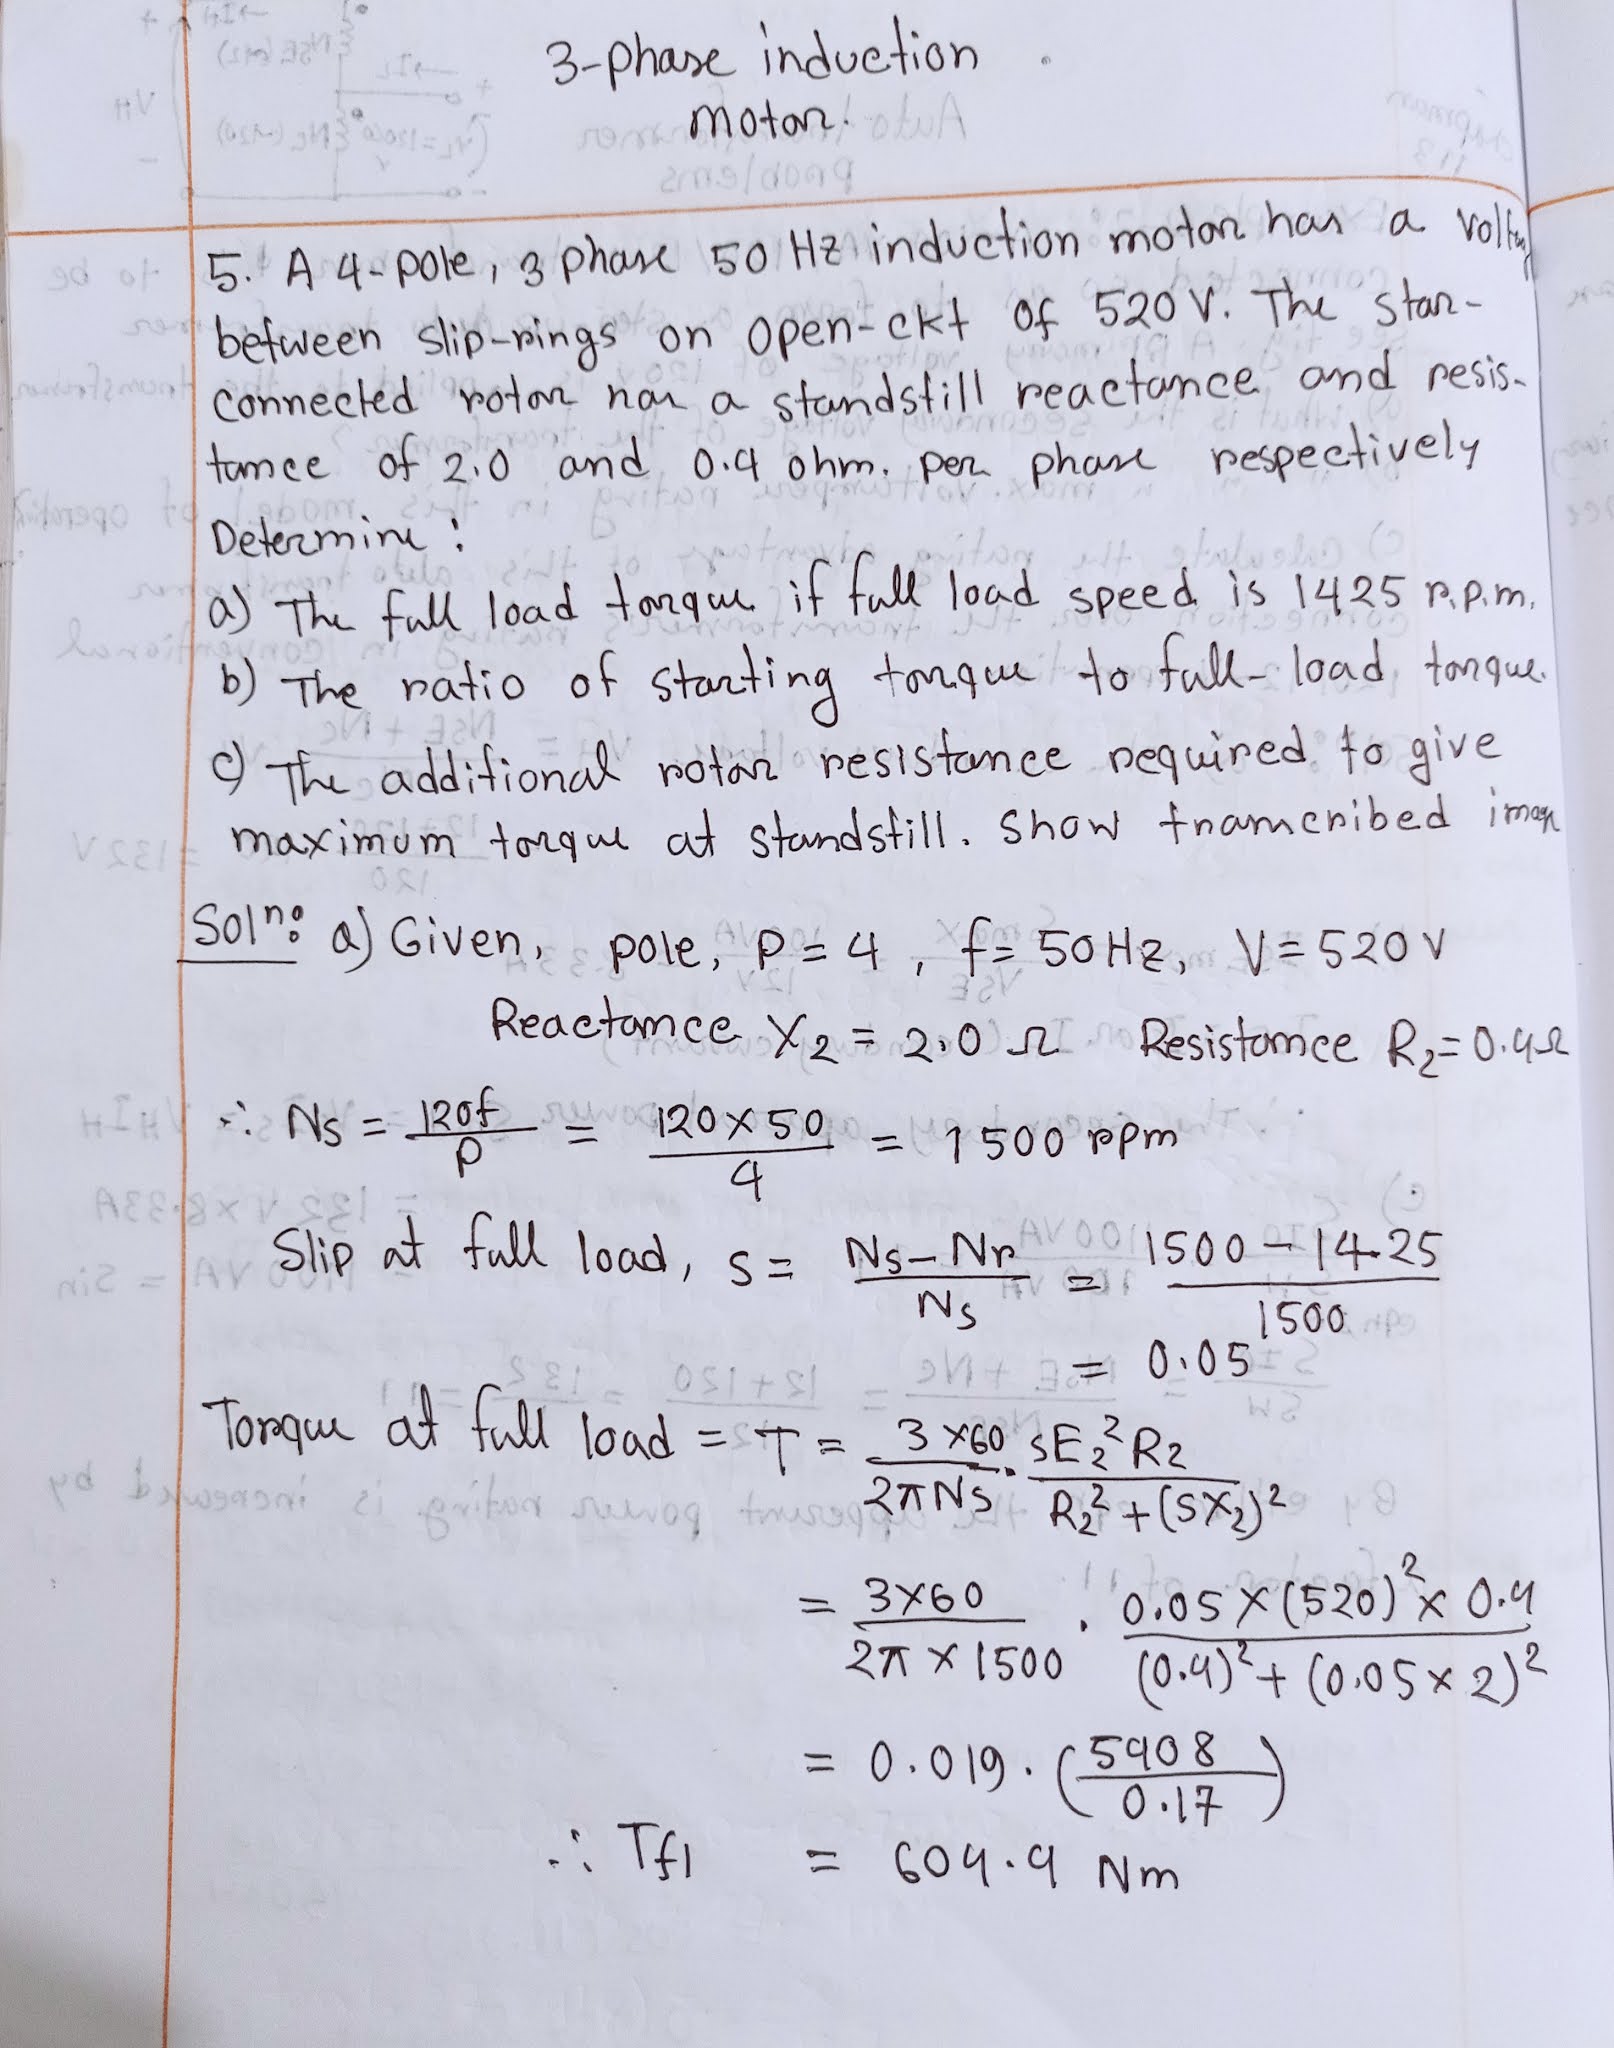 3-phase induction
motor.
5. A 4-pole, 3 phase 50 Hz induction motor has a
between slip-rings on open-ckt of 520 V. The star-
connected rotor has a standstill reactance and resis-
tance of 2.0 and 0.4 ohm. per phase respectively
Determine :
a) The full load torque if full load speed is 1425 r.p.m.
b) The ratio of starting torque to full-load torque.
c) The additional rotor resistance required to give
maximum torque at standstill. Show transcribed
Solⁿ: a) Given, pole, P = 4 , f = 50 Hz, V = 520 V
Reactance X₂ = 2.0 Ω Resistance R₂ = 0.4Ω
∴ Ns = 120f/P = 120 × 50/4 = 1500 rpm
Slip at full load, s = Ns - Nr/Ns = 1500 - 1425/1500
= 0.05
Torque at full load = T = 3 × 60/2π Ns · sE₂² R₂/R₂² + (SX₂)²
= 3×60/2π × 1500 · 0.05 × (520)² × 0.4/(0.4)² + (0.05 × 2)²
= 0.019 · (5408/0.17)
∴ Tfl = 604.4 Nm